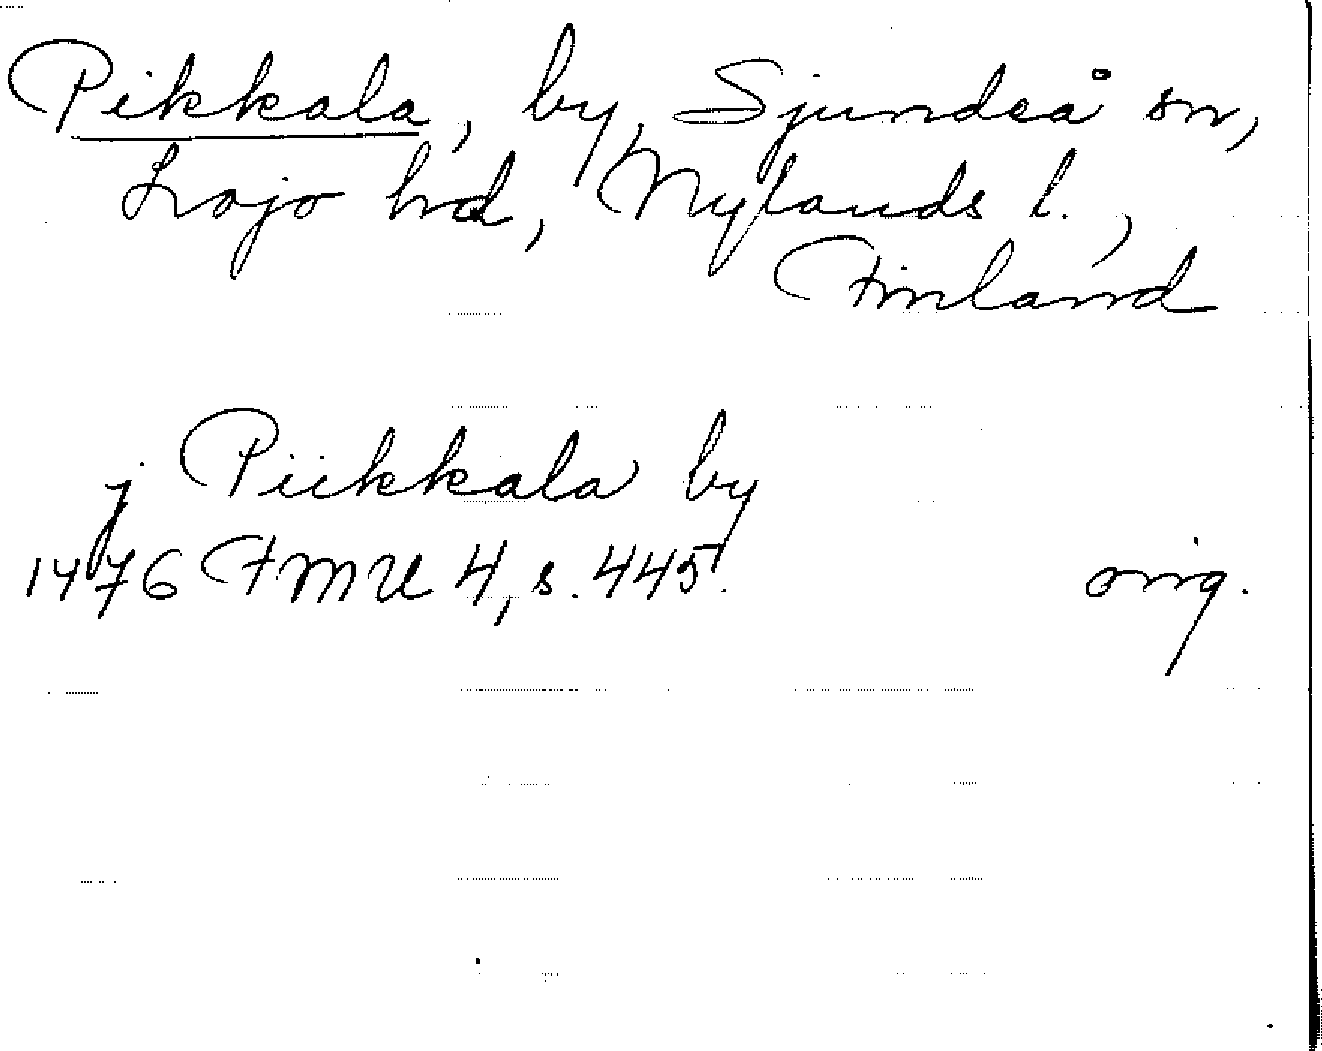 Pikkala, by, Sjundeå sn,
Lojo hd, Nylands l.,
Finland
j Piikkala by
1476 FMU 4, s. 445.
orig.